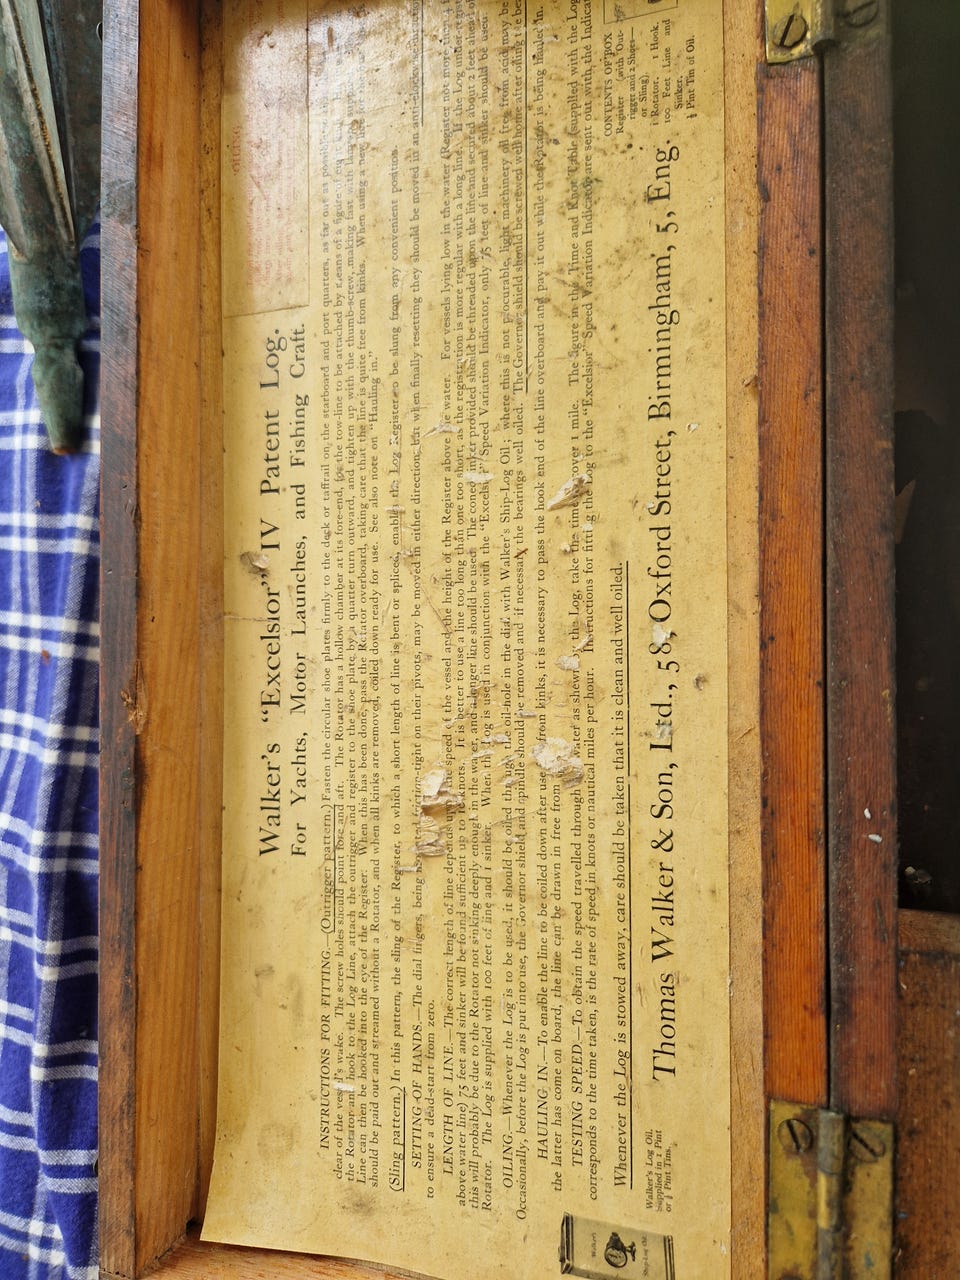 Walker's "Excelsior" IV Patent Log.
For Yachts, Motor Launches, and Fishing Craft.
INSTRUCTIONS FOR FITTING.—(Outrigger pattern.) Fasten the circular shoe plates firmly to the deck or taffrail on the starboard and port quarters, as far out as possible
clear of the vessel's wake. The screw holes should point fore and aft. The Rotator has a hollow chamber at its fore-end, for the tow-line to be attached by means of a figure of eight
the Rotator and hook to the Log Line, attach the outrigger and register to the shoe plate by a quarter turn outward, and tighten up with the thumb-screw, making fast with
Line can then be hooked into the eye of the Register. When this has been done, pass the Rotator overboard, taking care that the line is quite free from kinks. When using a new
should be paid out and streamed without a Rotator, and when all kinks are removed, coiled down ready for use. See also note on "Hauling in."
(Sling pattern.) In this pattern, the sling of the Register, to which a short length of line is bent or spliced, enables the Log Register to be slung from any convenient position.
SETTING OF HANDS.—The dial fingers, being friction-tight on their pivots, may be moved in either direction, but when finally resetting they should be moved in an anti-clockwise direction
to ensure a dead-start from zero.
LENGTH OF LINE.—The correct length of line depends upon the speed of the vessel and the height of the Register above the water. For vessels lying low in the water (Register not more than
above water line) 75 feet and sinker will be found sufficient up to knots. It is better to use a line too long than one too short, as the registration is more regular with a long line. If the Log under-registers
this will probably be due to the Rotator not sinking deeply enough in the water, and a longer line should be used. The coned sinker provided should be threaded upon the line and secured about 2 feet ahead of
Rotator. The Log is supplied with 100 feet of line and 1 sinker. When the Log is used in conjunction with the "Excelsior" Speed Variation Indicator, only 75 feet of line and sinker should be used.
OILING.—Whenever the Log is to be used, it should be oiled through the oil-hole in the dial with Walker's Ship-Log Oil; where this is not procurable, light machinery oil free from acid may be
Occasionally, before the Log is put into use, the Governor shield and spindle should be removed and if necessary the bearings well oiled. The Governor shield should be screwed well home after oiling the
HAULING IN.—To enable the line to be coiled down after use from kinks, it is necessary to pass the hook end of the line overboard and pay it out while the Rotator is being hauled in.
the latter has come on board, the line can be drawn in free from
TESTING SPEED.—To obtain the speed travelled through water as shewn by the Log, take the time over 1 mile. The figure in the Time and Knot Table (supplied with the Log)
corresponds to the time taken, is the rate of speed in knots or nautical miles per hour. Instructions for fitting the Log to the "Excelsior" Speed Variation Indicator are sent out with the Indicator
Whenever the Log is stowed away, care should be taken that it is clean and well oiled.
Walker's Log Oil.
Supplied in 1 Pint
or ½ Pint Tins.
Thomas Walker & Son, Ltd., 58, Oxford Street, Birmingham, 5, Eng.
CONTENTS OF BOX
Register (with Out-
rigger and 2 Shoes—
or Sling).
1 Rotator, 1 Hook.
100 Feet Line and
Sinker.
¼ Pint Tin of Oil.
Walker's
Ship-Log Oil.